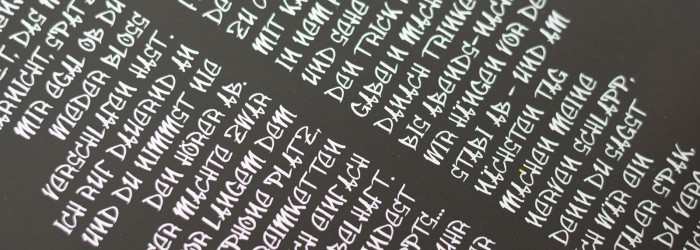 DAS
ARNICHT, SPÄT
MIR EGAL OB DU
WIEDER BLOSS
VERSCHLAFEN HAST.
ICH RUF DAUERND AN
UND DU NIMMST NIE
DEN HÖRER AB.
ER MACHTE ZWAR
OR LANGEM DEM
PHONE PLATZ,
EIMKETTEN
CH EINFACH
BELHAFT.
NDEST
PPTS...
UHR
ZU
MIT K
IN NEM
UND SEHE
DEN TRICK
GABELN MACH
DANACH TRINKE
BIS ABENDS NACH
WIR HÄNGEN VOR DE
STABI AB - UND AM
NÄCHSTEN TAG
MACHEN MEINE
NERVEN SCHLAPP.
DENN DU SAGST
CH WAR EIN
THER SPAK
DU VERS